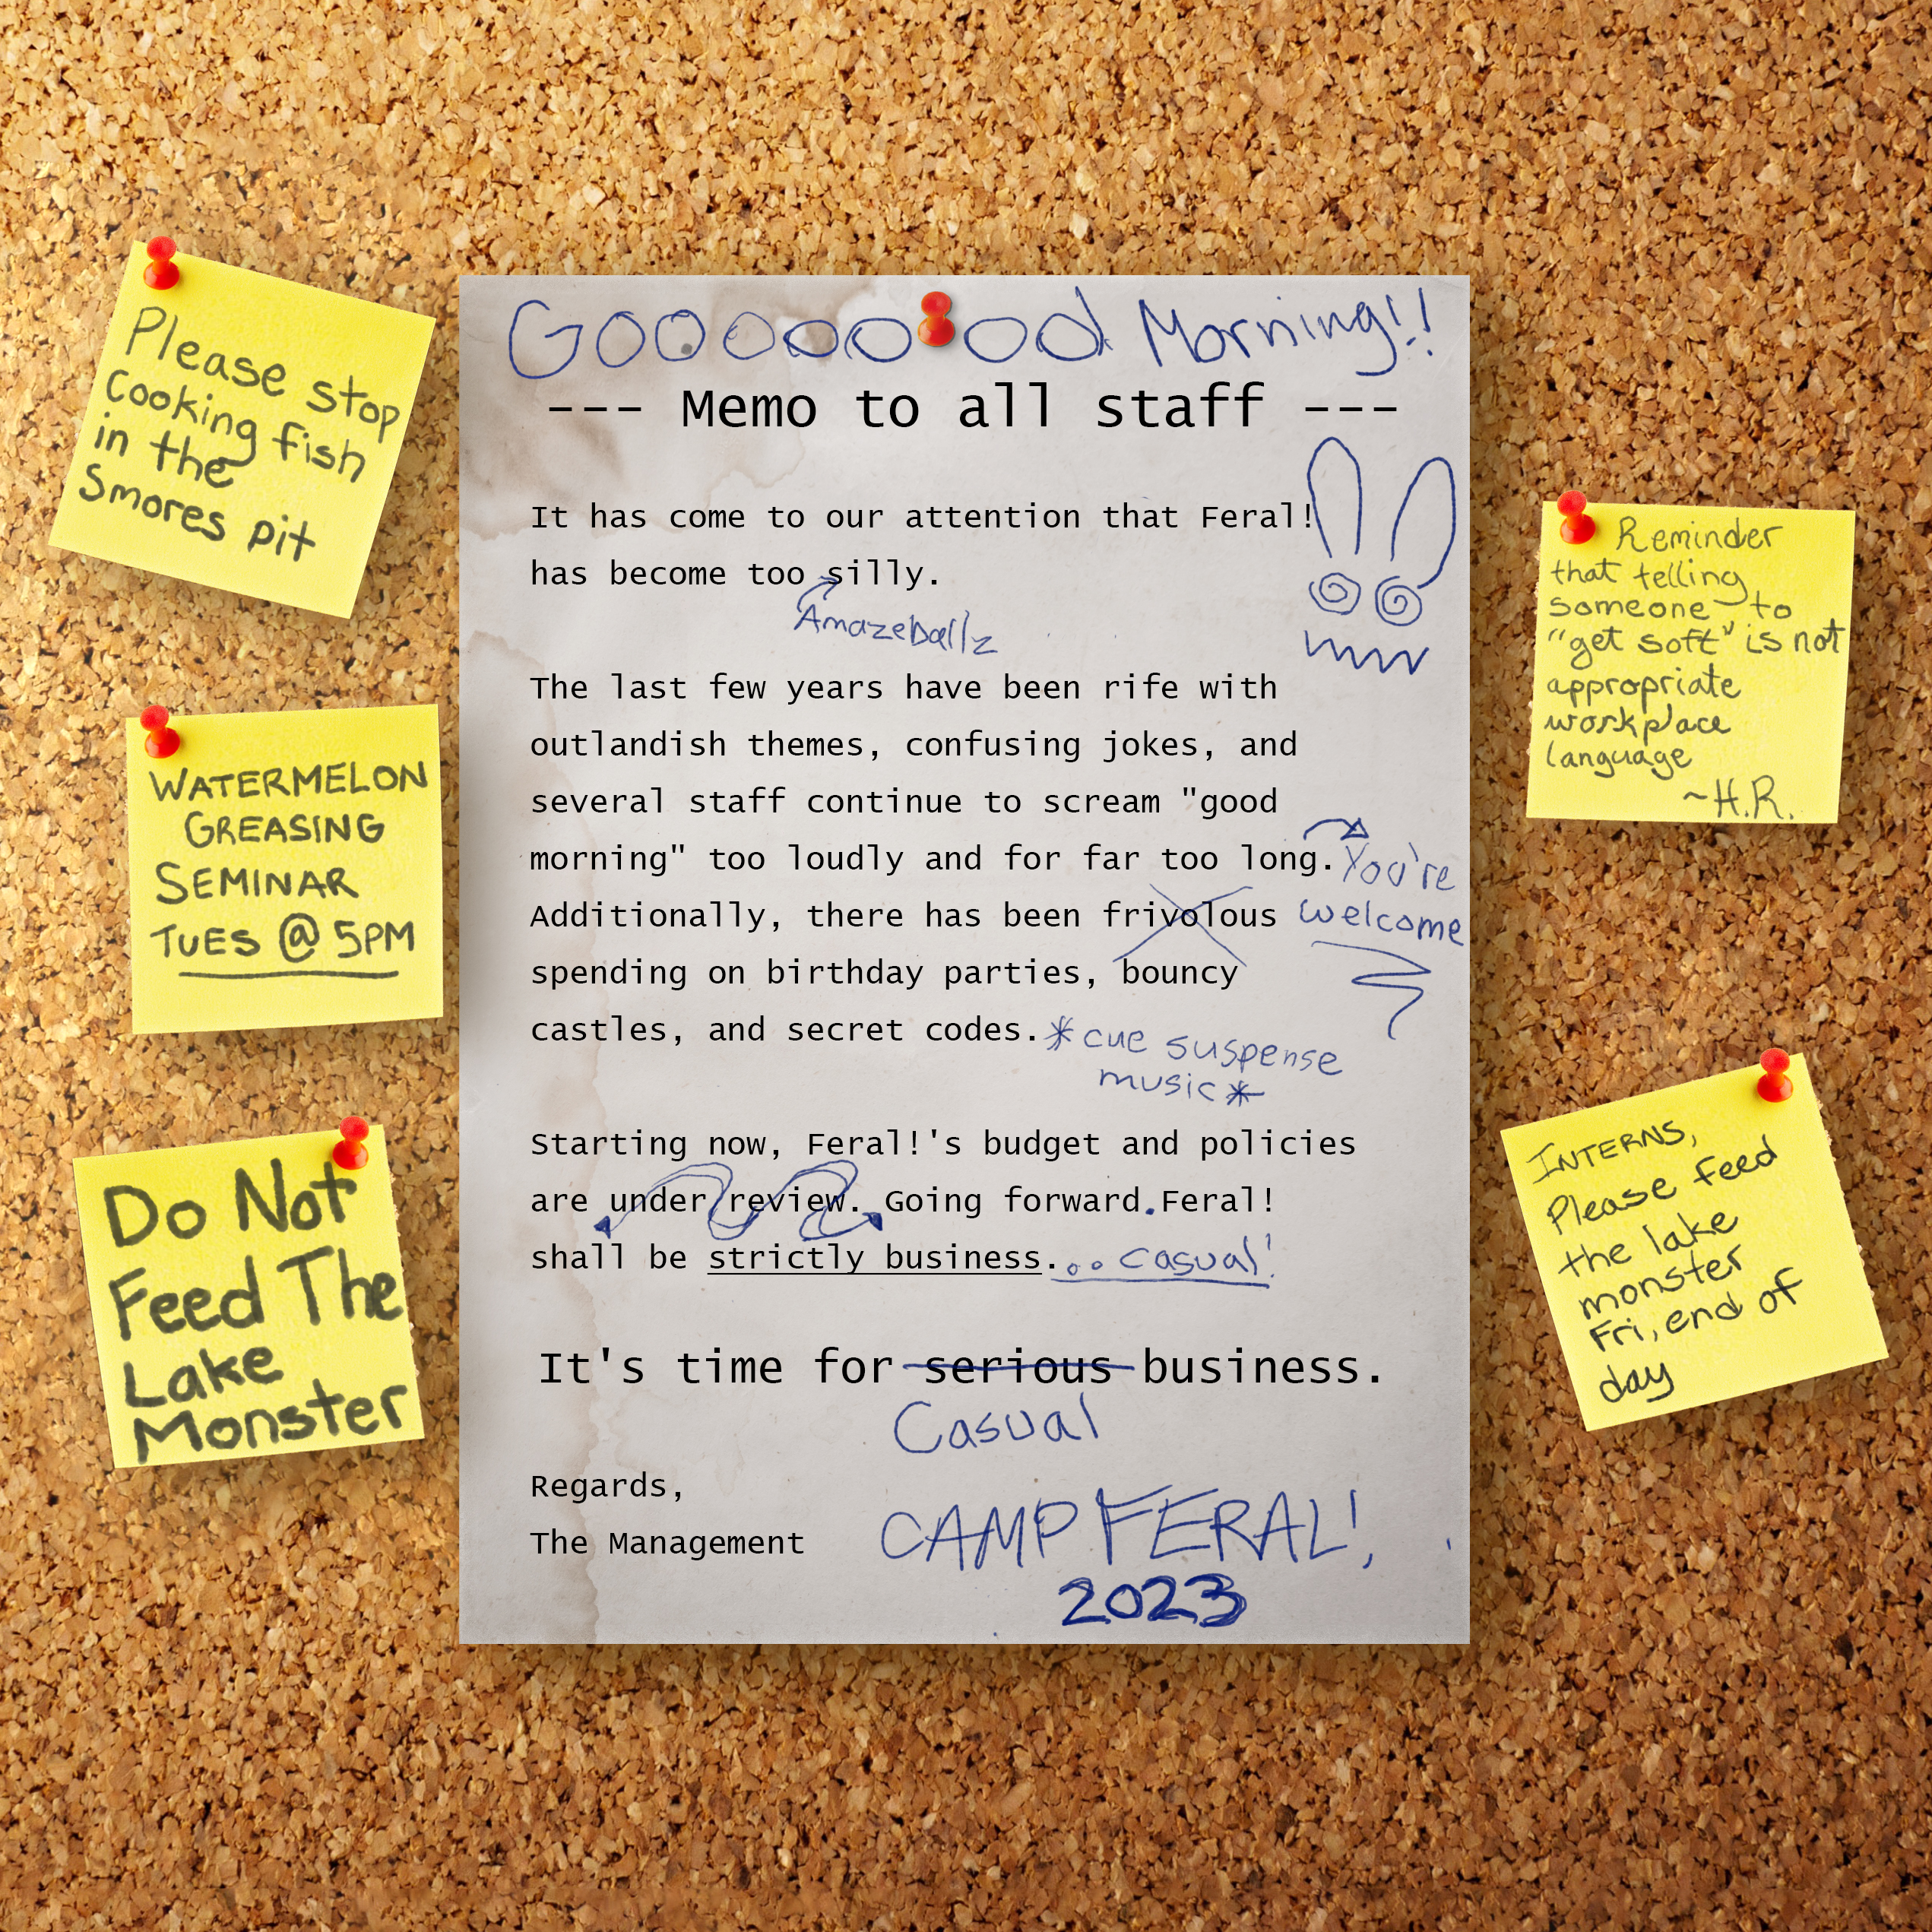 Please stop
cooking fish
in the
Smores pit
WATERMELON
GREASING
SEMINAR
TUES @ 5PM
Do Not
Feed The
Lake
Monster
Goooooood Morning!!
--- Memo to all staff ---
It has come to our attention that Feral!
has become too silly.
Amazeballz
The last few years have been rife with
outlandish themes, confusing jokes, and
several staff continue to scream "good
morning" too loudly and for far too long. You're
Additionally, there has been frivolous welcome
spending on birthday parties, bouncy
castles, and secret codes. *cue suspense
music*
Starting now, Feral!'s budget and policies
are under review. Going forward. Feral!
shall be strictly business... casual!
It's time for serious business.
Casual
Regards,
The Management
CAMP FERAL!
2023
Reminder
that telling
someone to
"get soft" is not
appropriate
workplace
language
~H.R.
INTERNS,
Please feed
the lake
monster
Fri, end of
day